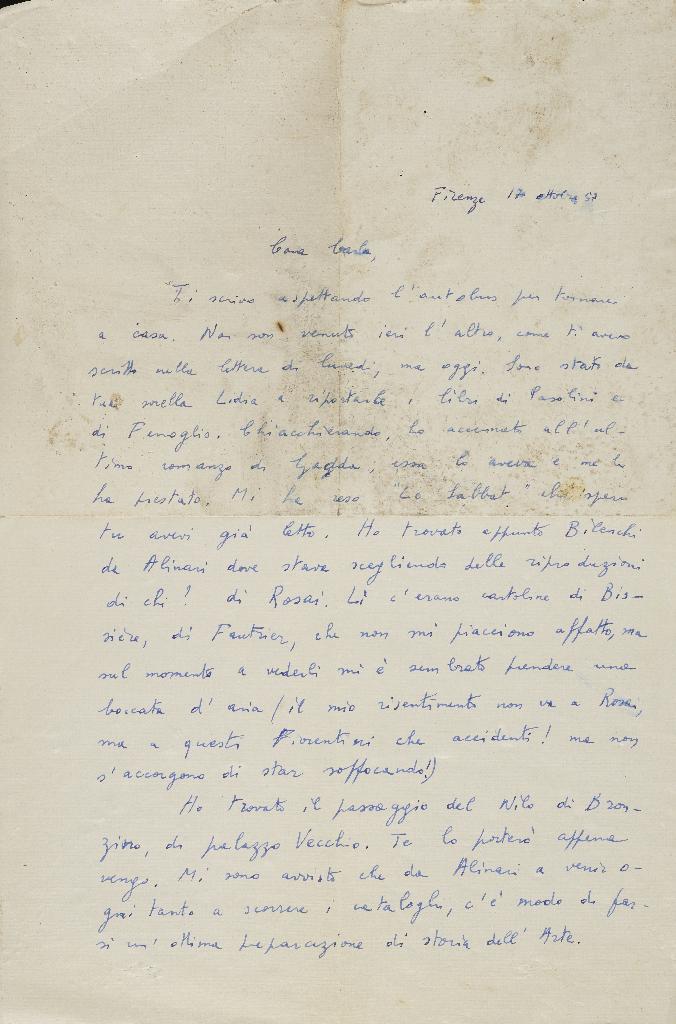 Firenze 17 ottobre 57
Cara Carla,
Ti scrivo aspettando l'autobus per tornare
a casa. Non son venuto ieri l'altro, come ti avevo
scritto nella lettera di lunedì, ma oggi. Sono stato da
tua sorella Lidia a riportarle i libri di Pasolini e
di Fenoglio. Chiacchierando, ho accennato all'ul-
timo romanzo di Gadda, essa lo aveva e me lo
ha prestato. Mi ha reso "Le Sabbat" che spero
tu avevi già letto. Ho trovato appunto Bilenchi
da Alinari dove stava scegliendo delle riproduzioni
di chi? di Rosai. Lì c'erano cartoline di Bis-
sière, di Fautrier, che non mi piacciono affatto, ma
sul momento a vederli mi è sembrato prendere una
boccata d'aria (il mio risentimento non va a Rosai,
ma a questi Fiorentini che accidenti! ma non
s'accorgono di star soffocando!)
Ho trovato il passaggio del Nilo di Bron-
zino, di palazzo Vecchio. Te lo porterò appena
vengo. Mi sono avvisto che da Alinari a venir o-
gni tanto a scorrere i cataloghi, c'è modo di far-
si un'ottima preparazione di storia dell'Arte.